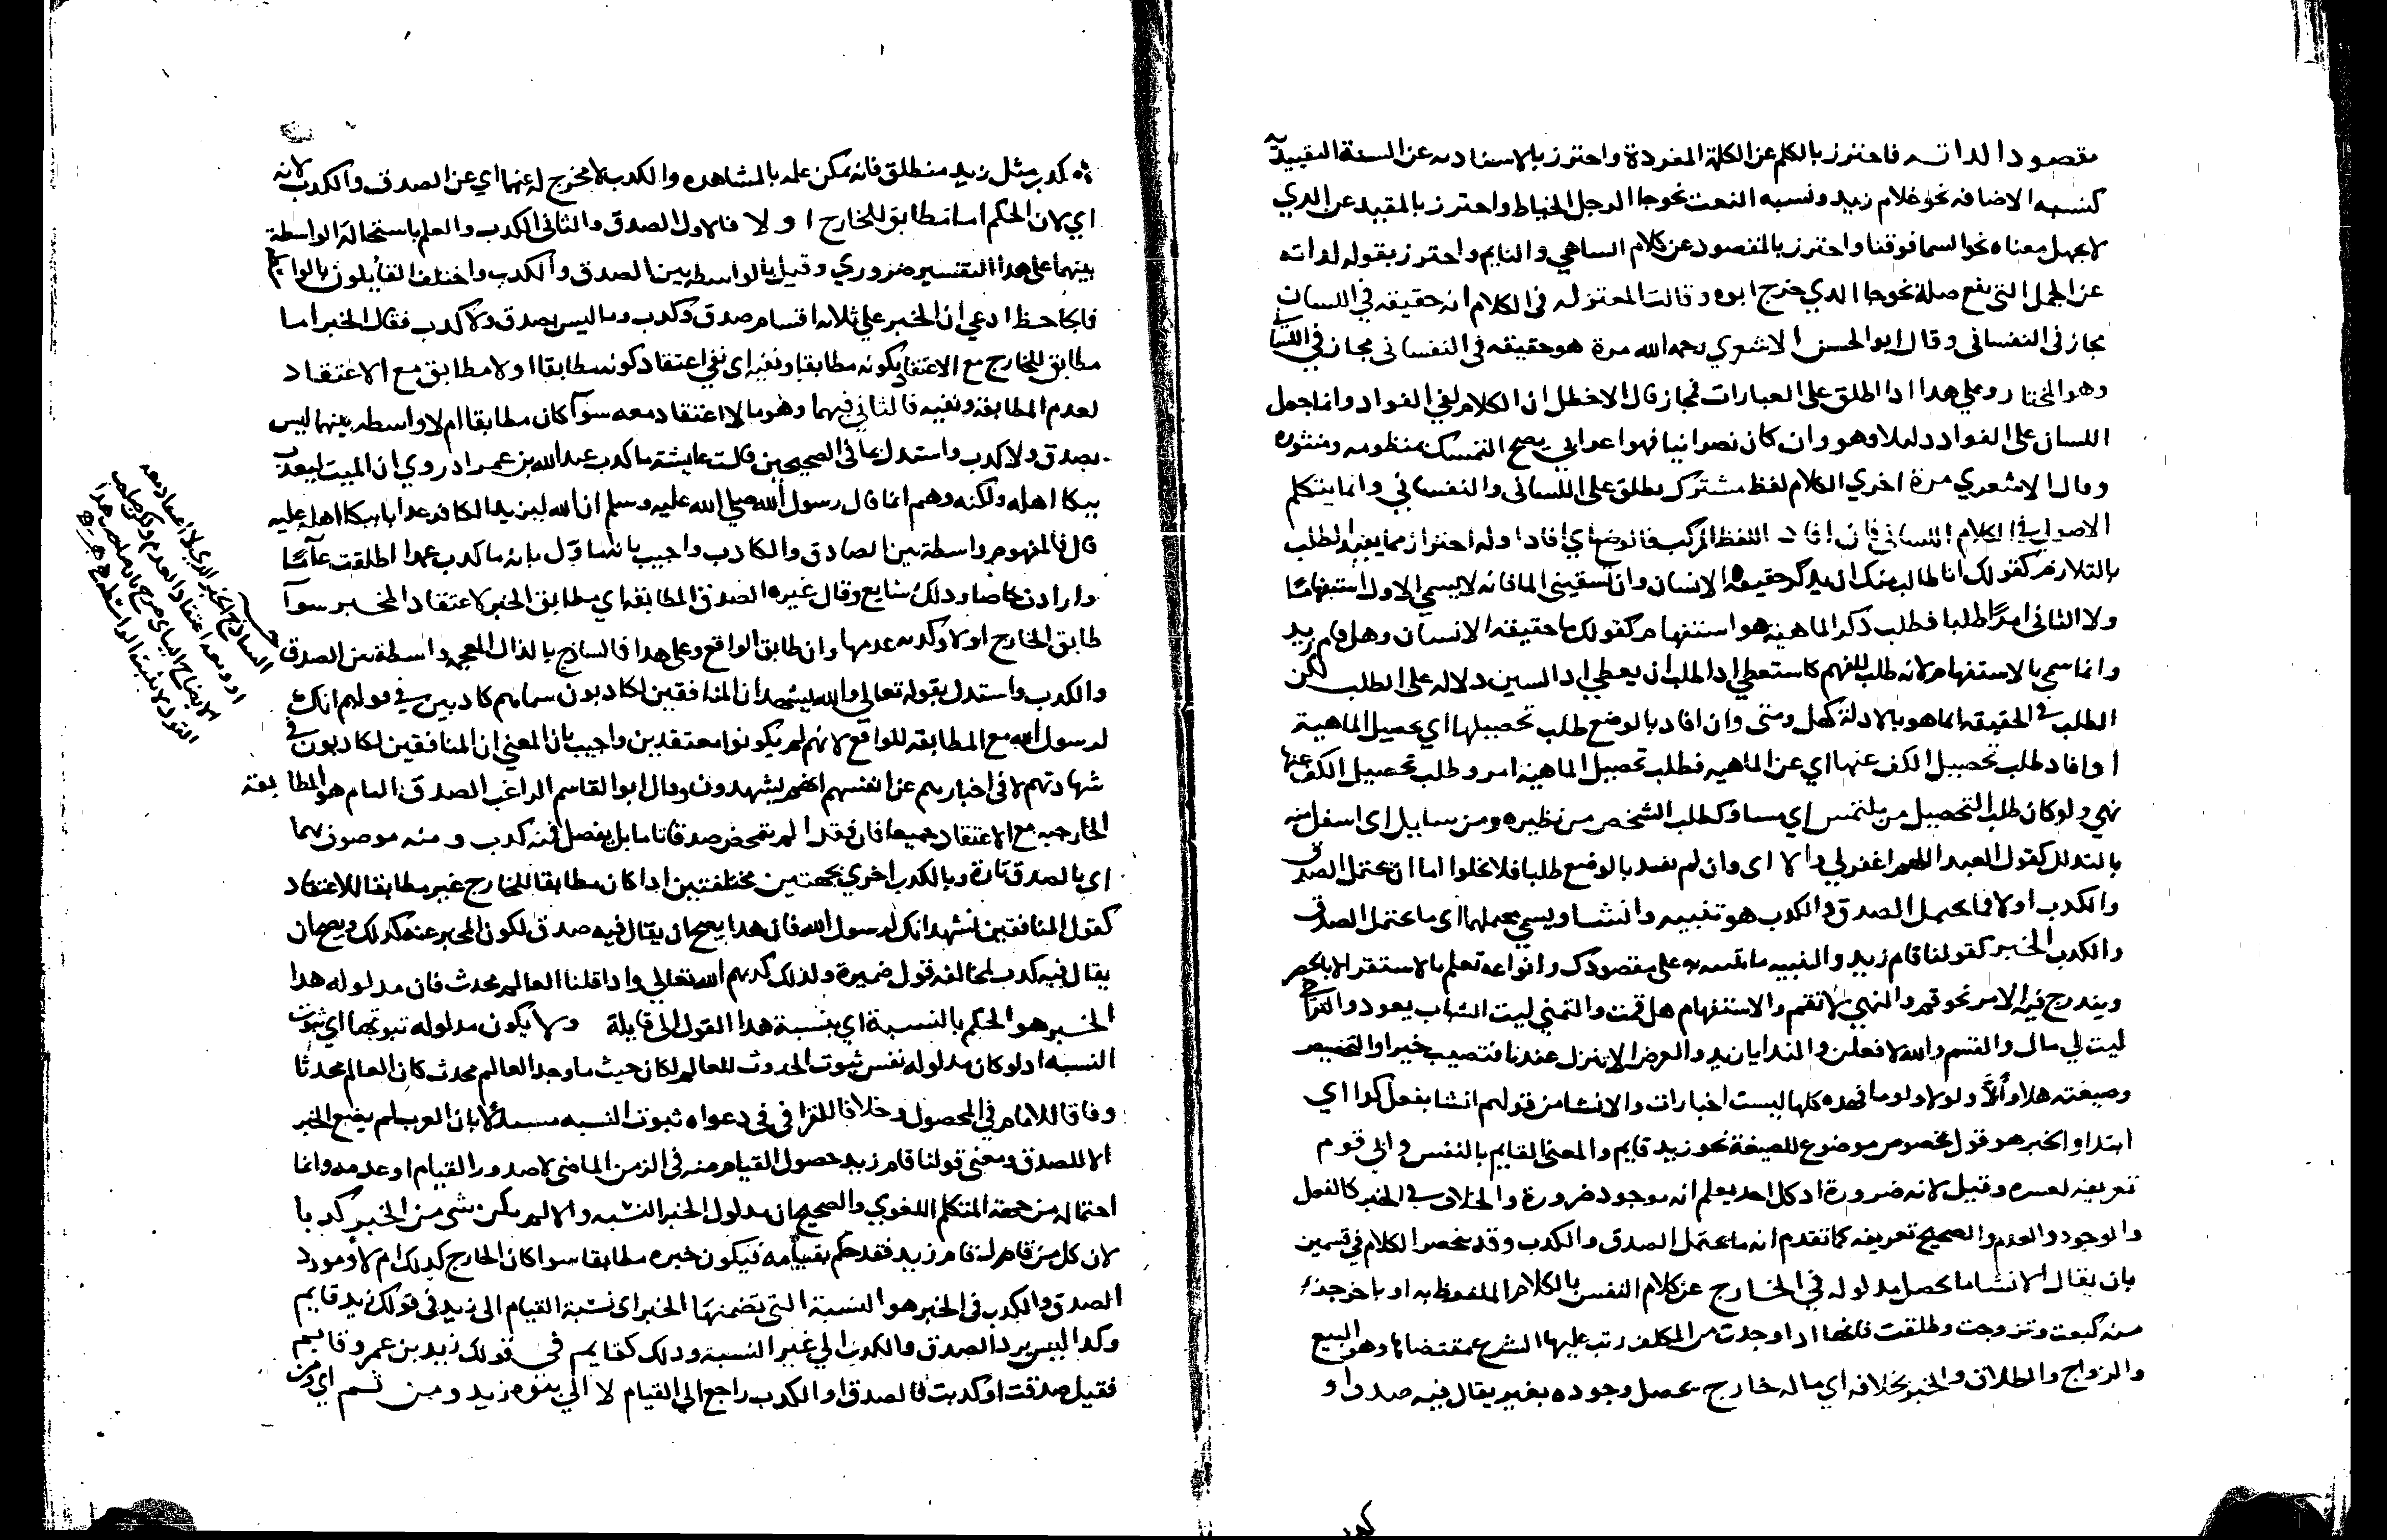 مقصود الذاته فاحترز بالكلم عن الكلمة المفردة واحترز بالاسنادية عن النسبة التقييدية
كنسبه الاضافه نحو غلام زيد ونسبه النعت نحو جا الرجل الخياط واحترز بالمقيد عن الذي
لا يجهل معناه نحو السما فوقنا واحترز بالمقصود عن كلام الساهي والنايم واحترز بقوله لذاته
عن الجمل التي يقع صلة نحو جا الذي خرج ابوه وقالت المعتزله في الكلام انه حقيقه في اللسان
مجاز في النفساني وقال ابو الحسن الاشعري رحمه الله مرة هو حقيقه في النفساني مجاز في اللساني
وهو المختار وعلى هدا ادا اطلق على العبارات فمجاز قال الاخطل ان الكلام لفي الفواد وانما جعل
اللسان على الفواد دليلا وهو وان كان نصرانيا فهو اعرابي يصح التمسك بمنظومه ومنثوره
وقال الاشعري مرة اخري الكلام لفظ مشترك يطلق على اللساني والنفساني وانما يتكلم
الاصولي في الكلام اللساني فان افاد اللفظ المركب فانوضع اي افادا وله احترازا مما يفيد الطلب
بالتلازم كقولك انا طالب منك ان يدكر حقيقه الانسان وان تسقيني الما فانه لا يسمي الاول استفهاما
ولا الثاني امرًا طلبا فطلب ذكر الماهيه هو استفهام كقولك ما حقيقه الانسان وهل قام زيد
وانما سمي بالاستفهام لانه طلب للفهم كاستعطي ادا طلب ان يعطي اد السين دلاله على الطلب لكن
الطلب في الحقيقه انما هو بالادلة كهل ومتى وان افاد بالوضع طلب تحصيلها اي تحصيل الماهية
او افاد طلب تحصيل الكف عنها اي عن الماهيه فطلب تحصيل الماهيه امر وطلب تحصيل الكف عنها
نهي ولو كان طلب التحصيل من ملتمس اي مساو كطلب الشخص من نظيره ومن سايل اي اسفل منه
بالتدلل كقول العبد اللهم اغفر لي والا اي وان لم يفيد بالوضع طلبا فلا يخلوا اما ان يحتمل الصدق
والكدب اولا فما لا يحتمل الصدق والكدب هو تنبيه وانشا ويسمي محتملها اي ما يحتمل الصدق
والكدب الخبر كقولنا قام زيد والتنبيه ما تنبه به على مقصودك وانواعه تعلم بالاستقر لا بالحصر
ويندرج فيه الامر نحو قم والنهي لا تقم والاستفهام هل قمت والتمني ليت الشباب يعود والترجي
ليت لي مال والقسم والله لافعلن والندا يا زيد والعرض الا تنزل عندنا فتصيب خيرا والتحضيض
وصيغته هلا وألّا ولولا ولوما فهده كلها ليست اخبارات والانشا من قولهم انشا يفعل كدا اي
ابتدا والخبر هو قول مخصوص موضوع للصيغة نحو زيد قايم والمعنى القايم بالنفس وابي قوم
تعريفه لعسره وقيل لانه ضرورة اد كل احد يعلم انه موجود ضرورة والخلاف في الخبر كالعلم
والوجود والعدم والصحيح تعريفه كما تقدم انه ما يحتمل الصدق والكدب وقد يحصر الكلام في قسمين
بان يقال الانشا ما يحصل مدلوله في الخارج عن كلام النفس بالكلام الملفوظ به او باخر جزء
منه كبعت وتزوجت وطلقت فانها ادا وجدت من المكلف رتب عليها الشرع مقتضاها وهو البيع
والزواج والطلاق والخبر بخلافه اي ماله خارج يحصل وجوده بغير يقال فيه صدق او
كدب
كدب مثل زيد منطلق فانه يمكن علمه بالمشاهده والكدب ولا مخرج له عنهما اي عن الصدق والكدب لانه
اي لان الحكم اما مطابق للخارج او لا فالاول الصدق والثاني الكدب والعلم باستحالة الواسطة
بينهما على هدا التفسير ضروري وقيل بالواسطه بين الصدق والكدب واختلف القايلون بالواسطة
فالجاحظ ادعي ان الخبر علي ثلاثه اقسام صدق وكدب وما ليس بصدق ولا كدب فقال الخبر اما
مطابق للخارج مع الاعتقاد بكونه مطابقا ونفيه اي نفي اعتقاد كونه مطابقا او لا مطابق مع الاعتقاد
لعدم المطابقه ونفيه فالثاني فيهما وهو ما لا اعتقاد معه سوآ كان مطابقا ام لا واسطه بينهما ليس
بصدق ولا كدب واستدل بما في الصحيحين قالت عايشة ما كدب عبد الله بن عمر اد روي ان الميت ليعذب
ببكا اهله ولكنه وهم انما قال رسول الله صلي الله عليه وسلم ان الله ليزيد الكافر عدابا ببكا اهله عليه
قال فالمفهوم واسطة بين الصادق والكادب واجيب بانه ماول بانه ما كدب عمدا اطلقت عامًا
وارادت خاصا ودلك شايع وقال غيره الصدق المطابقه اي مطابق الخبر لاعتقاد المخبر سوآ
طابق الخارج اولا وكدبه عدمها وان طابق الواقع وعلى هدا فالساذج بالذال المعجمه واسطة بين الصدق
والكدب واستدل بقوله تعالي والله يشهد ان المنافقين لكادبون سماهم كادبين في قولهم انك
لرسول الله مع المطابقه للواقع لانهم لم يكونوا معتقدين واجيب بان المعني ان المنافقين لكادبون في
شهادتهم لا في اخبارهم عن انفسهم انهم يشهدون وقال ابو القاسم الراغب الصدق التام هو المطابقة
الخارجيه مع الاعتقاد جميعا فان فقدا لم يتمحض صدقا تاما بل يفصل فمنه كدب ومنه موصوف بهما
اي بالصدق تارة وبالكدب اخري بجهتين مختلفتين ادا كان مطابقا للخارج غير مطابقا للاعتقاد
كقول المنافقين نشهد انك لرسول الله فان هدا يصح ان يقال فيه صدق لكون المخبر عنه كدلك ويصح ان
يقال فيه كدب لمخالفه قول ضميره ولذلك كدبهم الله تعالي وادا قلنا العالم محدث فان مدلوله هدا
الخبر هو الحكم بالنسبة اي بنسبة هدا القول الى قايلة ولا يكون مدلوله ثبوتها اي ثبوت
النسبه اد لو كان مدلوله نفس ثبوت الحدوث للعالم لكان حيث ما وجد العالم محدث كان العالم محدثا
وفاقا للامام في المحصول وخلافا للقرافي في دعواه ثبوت النسبه مستدلا بان العرب لم يضع الخبر
الا للصدق ومعني قولنا قام زيد حصول القيام منه في الزمن الماضي لا صدور القيام او عدمه وانما
احتماله من جهة المتكلم اللغوي والصحيح ان مدلول الخبر النسبه والا لم يكن شي من الخبر كدبا
لان كل من قام له قام زيد فقد حكم بقيامه فيكون خبره مطابقا سوا كان الخارج كدلك ام لا ومورد
الصدق والكدب في الخبر هو النسبة التي تضمنها الخبر اي نسبة القيام الى زيد في قولك زيد قايم
وكدا ليس يرد الصدق والكدب الي غير النسبة ودلك كقايم في قولك زيد بن عمرو قايم
فقيل صدقت او كدبت فالصدق او الكدب راجع الي القيام لا الي بنوه زيد ومن ثم اي ومن
الساذج الخبر الدي لا اعتقاد معه
او ومعه اعتقاد العدم
الايضاح البياني صرح
القول لا يثبت الواسطه